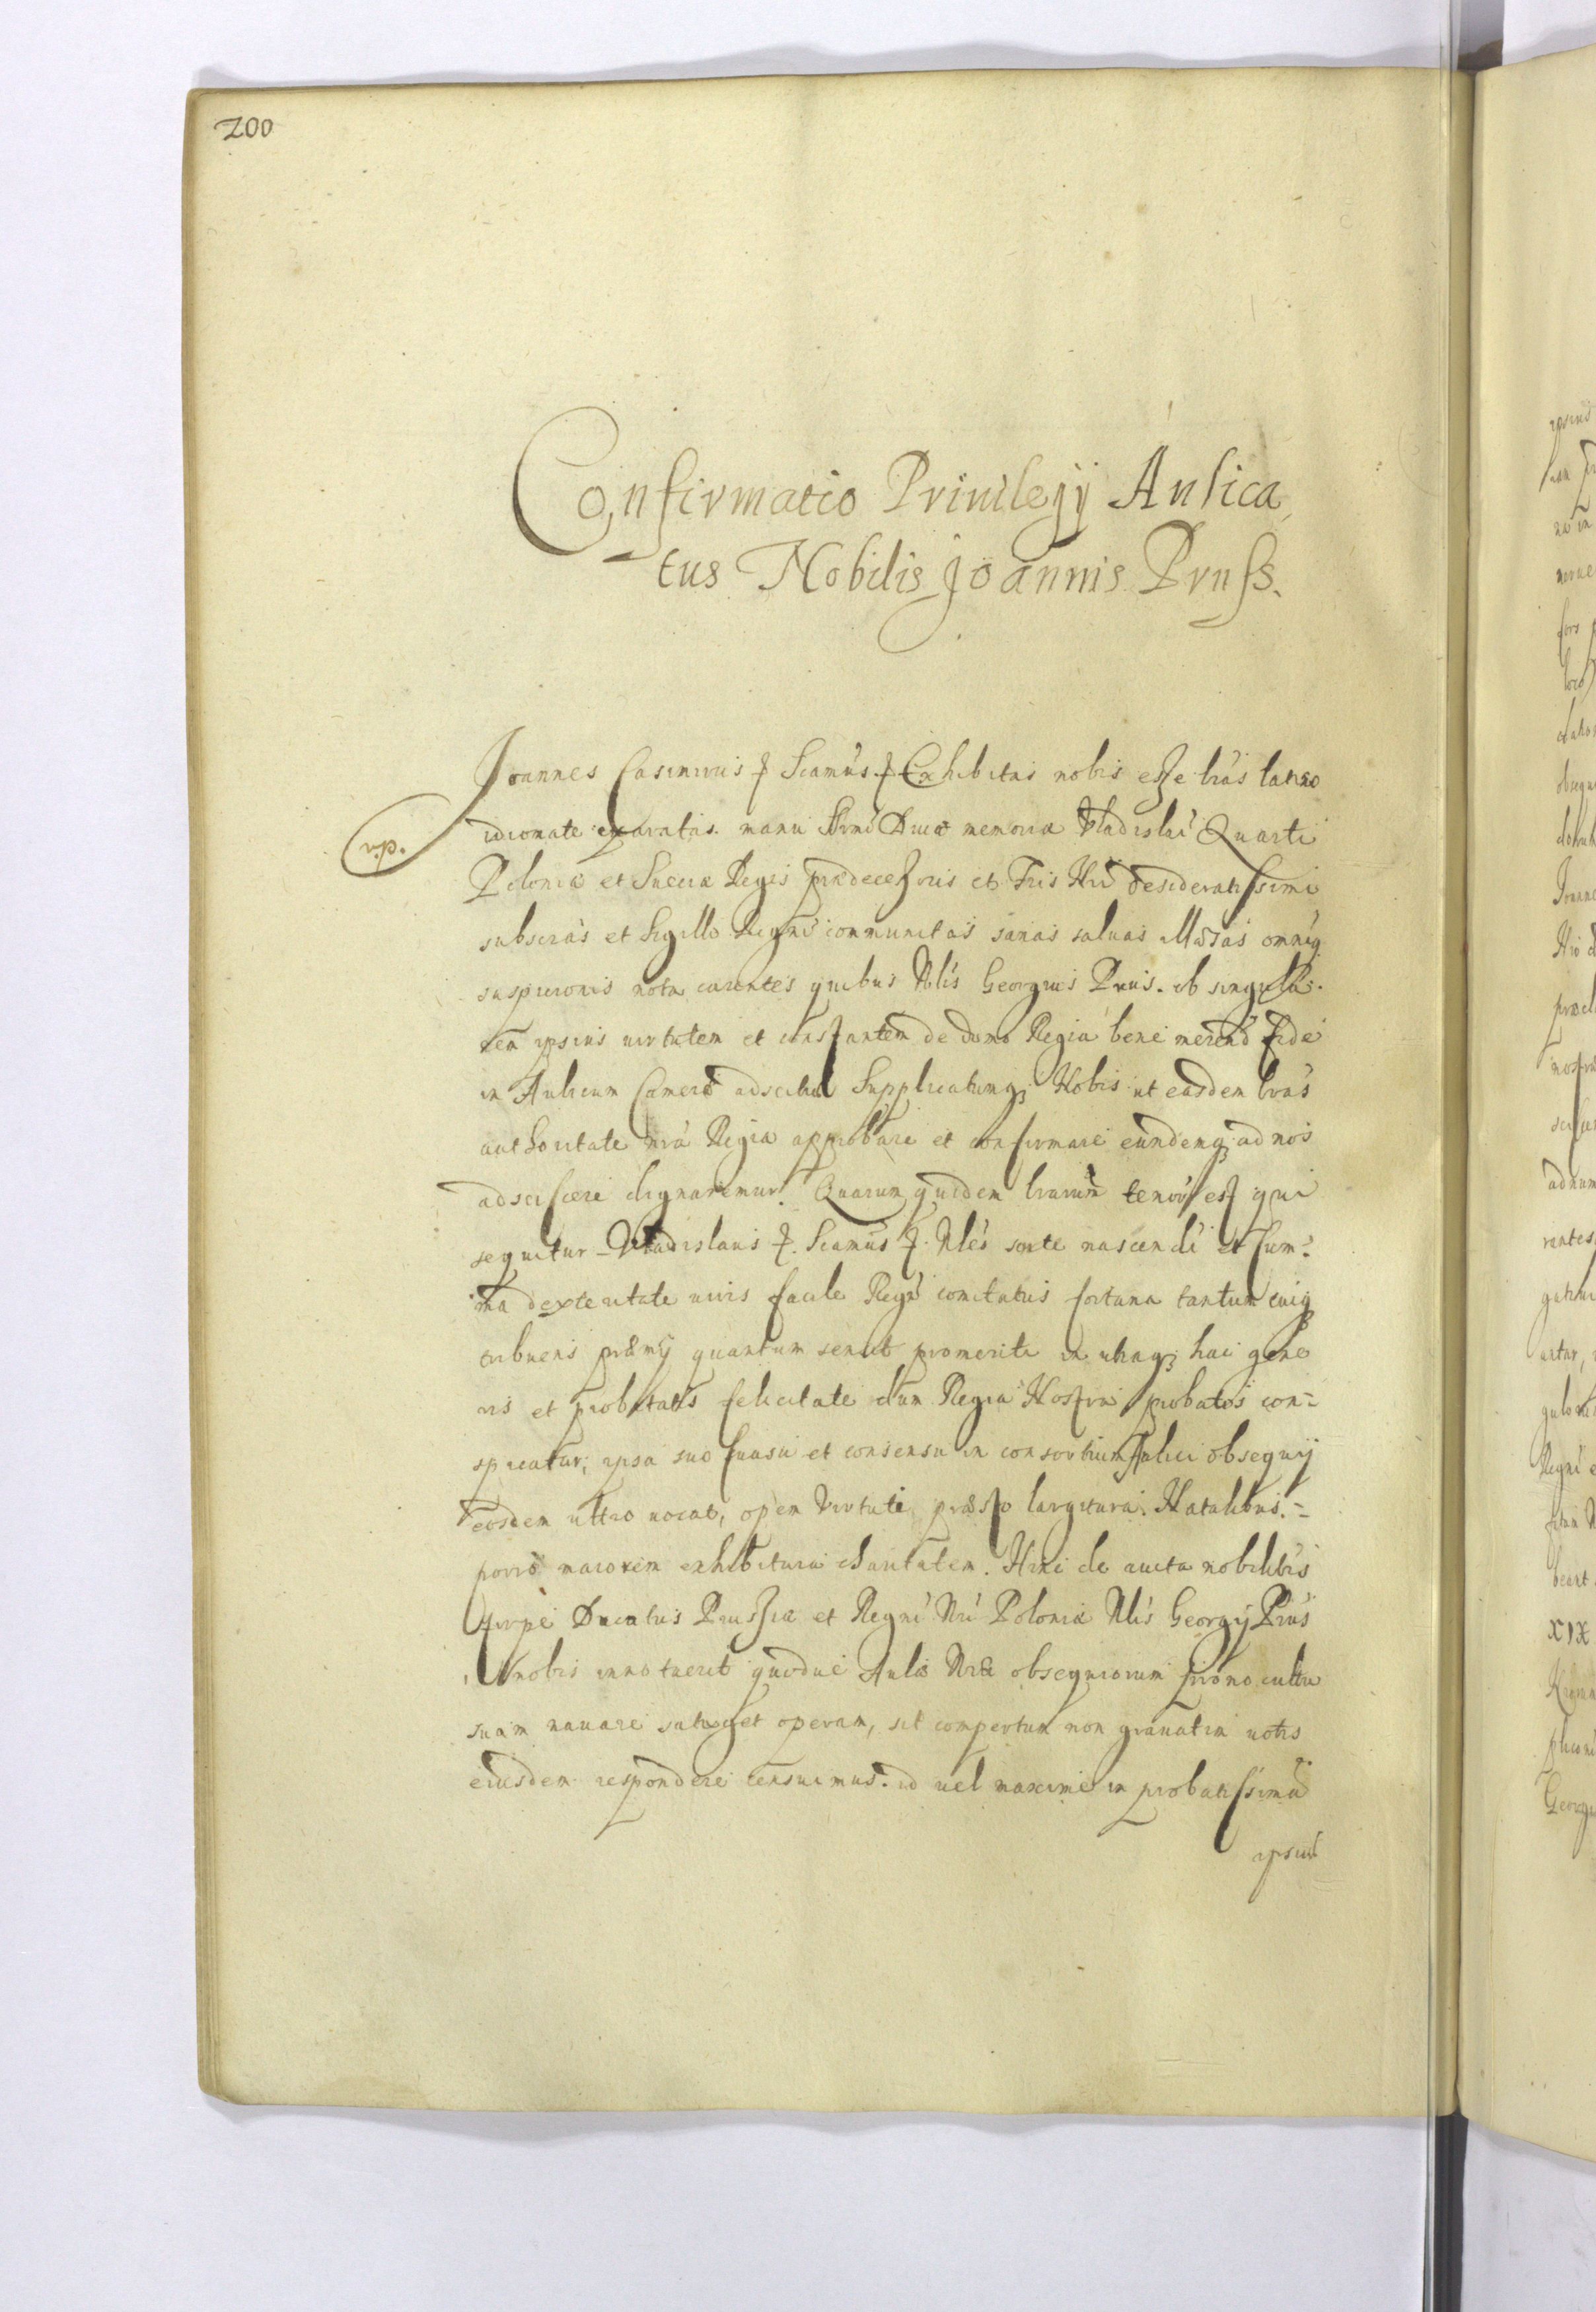 200
Confirmatio Priuilegij Aulica
tus Nobilis Joannis Pruss.
Joannes Casimirus Exhibitas nobis esse lras latino
v.p. idiomate exaratas manu Srmi Diuae memoriae Vladislai Quarti
Poloniae et Sueciae Regis praedecessoris et Fris Nri desideratissimi
subscras et Sigillo Regni communitas sanas saluas illaesas omniq
suspicionis nota carentes quibus Nlis Georgius Prus ob singula-
rem ipsius uirtutem et constantem de domo Regia bene merend fide
in Aulicum Camerae Supplicatumq Nobis ut easdem lras
authoritate nra Regia approbare et confirmare eundemq ad nos
adsciscere dignaremur. Quarum quidem lrarum tenor est qui
sequitur Vladislaus sorte nascendi et sum-
ma dexteritate uiris facile Regn comitatus fortuna tantum cuiq
tribuens praemij quantum promeriti in utraq hac gene
ris et probitatis felicitate dum Regia Nostra probatos con-
spicatur, ipsa suo suasu et consensu in consortium Aulici obsequij
eosdem ultro uocat, opem Virtuti praesto largitura. Natalibus
porro maiorem exhibitura charitatem. Hinc de auita nobilibus
stirpe Ducatus Prussiae et Regni Nri Poloniae Nlis Georgij Prus
nobis innotuerit quodue Aulae Nrae obsequiorum prono cultu
suam nauare satagat operam, sit compertum non grauatim uotis
eiusdem respondere censuimus. id uel maxime in probatissima
ipsius